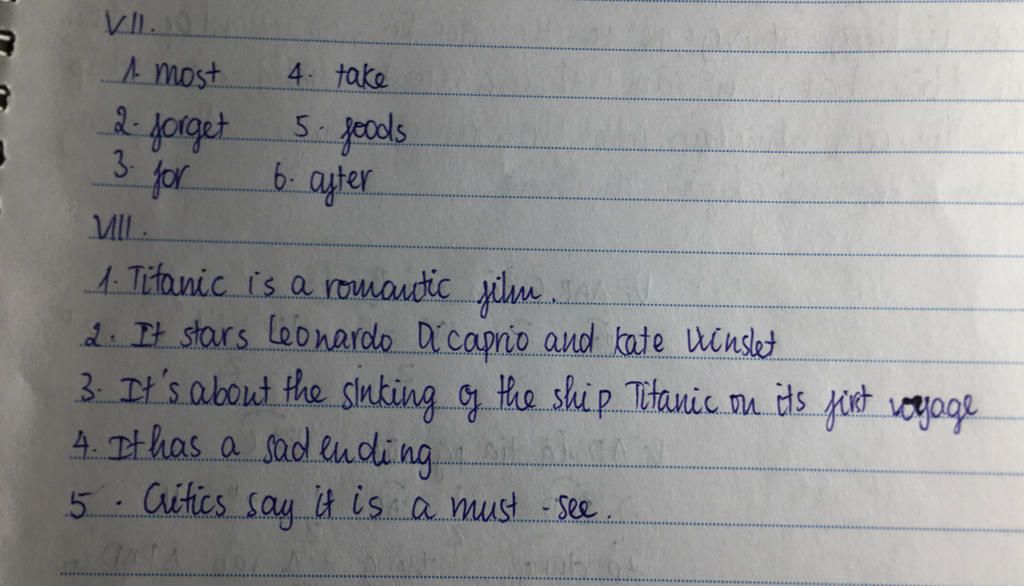 VII.
1. most 4. take
2. forget 5. foods
3. for 6. after
VIII.
1. Titanic is a romantic film.
2. It stars Leonardo Dicaprio and Kate Winslet
3. It's about the sinking of the ship Titanic on its first voyage
4. It has a sad ending
5. Critics say it is a must-see.